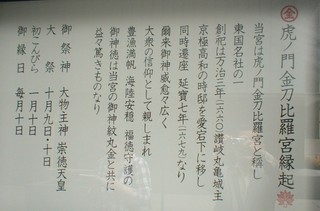 金 虎ノ門金刀比羅宮縁起
当宮は虎ノ門金刀比羅宮と稱し
東国名社の一
創祀は万治三年(一六六〇)讃岐丸亀城主
京極高和の時邸を愛宕下に移し
同時遷座 延寶七年(一六七九)なり
爾来御神威愈々広く
大衆の信仰として親しまれ
豊漁満帆 海陸安穏 福徳守護の
御神徳は当宮の御神紋丸金と共に
益々篤きものなり
御祭神 大物主神 崇徳天皇
大祭 十月九日・十日
初こんぴら 一月十日
御縁日 毎月十日